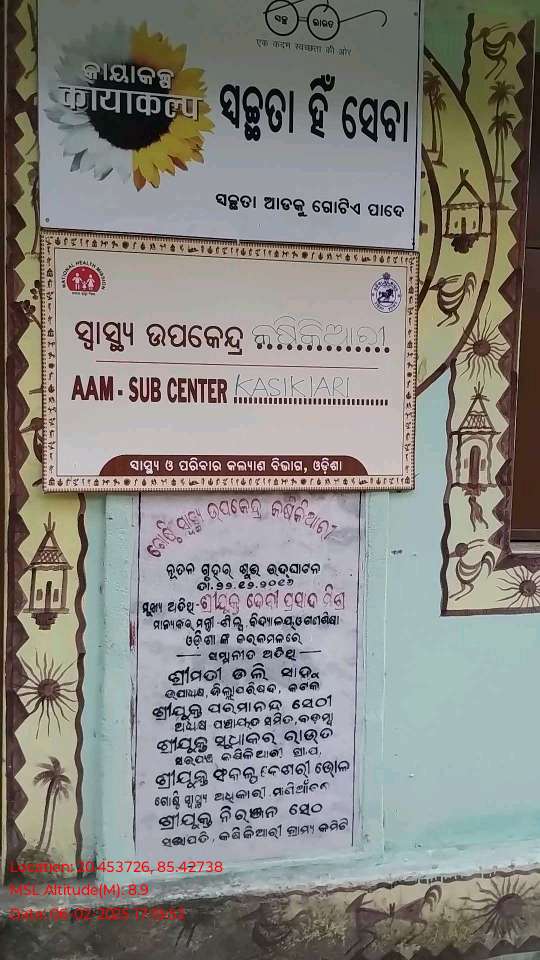 ସ୍ୱଚ୍ଛ ଭାରତ
एक कदम स्वच्छता की ओर
କାୟାକଳ୍ପ
कायाकल्प
ସ୍ୱଚ୍ଛତା ହିଁ ସେବା
ସ୍ୱଚ୍ଛତା ଆଡକୁ ଗୋଟିଏ ପାଦେ
NATIONAL HEALTH MISSION
ସ୍ୱାସ୍ଥ୍ୟ ଉପକେନ୍ଦ୍ର କଷିକିଆରୀ
AAM - SUB CENTER KASIKIARI
ସ୍ୱାସ୍ଥ୍ୟ ଓ ପରିବାର କଲ୍ୟାଣ ବିଭାଗ, ଓଡ଼ିଶା
ଗୋଷ୍ଠୀ ସ୍ୱାସ୍ଥ୍ୟ ଉପକେନ୍ଦ୍ର କଷିକିଆରୀ
ନୂତନ ଗୃହର ଶୁଭ ଉଦ୍‌ଘାଟନ
ମୁଖ୍ୟ ଅତିଥି - ଶ୍ରୀଯୁକ୍ତ ଦେବୀ ପ୍ରସାଦ ମିଶ୍ର
ମାନ୍ୟବର ମନ୍ତ୍ରୀ - ଶିଳ୍ପ, ବିଦ୍ୟାଳୟ ଓ ଗଣଶିକ୍ଷା
ଓଡ଼ିଶା ଙ୍କ କରକମଳରେ
ସମ୍ମାନୀତ ଅତିଥି
ଶ୍ରୀମତୀ ଡଲି ସାହୁ
ଉପାଧ୍ୟକ୍ଷ, ଜିଲ୍ଲାପରିଷଦ, କଟକ
ଶ୍ରୀଯୁକ୍ତ ପରମାନନ୍ଦ ସେଠୀ
ଅଧ୍ୟକ୍ଷ ପଞ୍ଚାୟତ ସମିତି, ବଡ଼ମ୍ବା
ଶ୍ରୀଯୁକ୍ତ ସୁଧାକର ରାଉତ
ସରପଞ୍ଚ କଷିକିଆରୀ ଗ୍ରା.ପ.
ଶ୍ରୀଯୁକ୍ତ କେଶରୀ ଭୋଳ
ଗୋଷ୍ଠୀ ସ୍ୱାସ୍ଥ୍ୟ ଅଧିକାରୀ
ଶ୍ରୀଯୁକ୍ତ ନିରଞ୍ଜନ ସେଠ
ସଭାପତି, କଷିକିଆରୀ ଗ୍ରାମ୍ୟ କମିଟି
Location: 20.453726, 85.42738
MSL Altitude(M): 8.9
Date: 06-02-2025